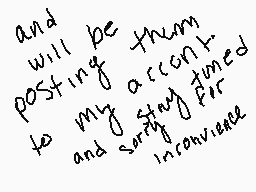 and
will be
posting them
to my accont.
and sorry stay tuned
for
inconvience